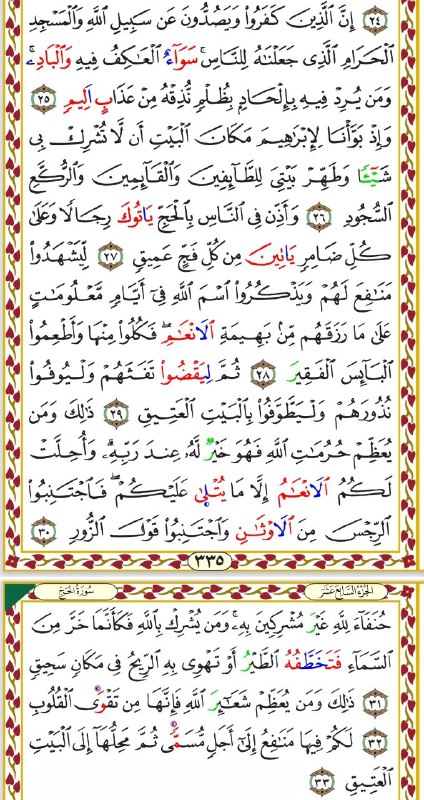 ٢٤ إِنَّ ٱلَّذِينَ كَفَرُواْ وَيَصُدُّونَ عَن سَبِيلِ ٱللَّهِ وَٱلْمَسْجِدِ
ٱلْحَرَامِ ٱلَّذِى جَعَلْنَٰهُ لِلنَّاسِ سَوَآءٌ ٱلْعَٰكِفُ فِيهِ وَٱلْبَادِۦ
وَمَن يُرِدْ فِيهِ بِإِلْحَادِۭ بِظُلْمٍ نُّذِقْهُ مِنْ عَذَابٍ اَلِيمٍ ٢٥
وَإِذْ بَوَّأْنَا لِإِبْرَٰهِيمَ مَكَانَ ٱلْبَيْتِ أَن لَّا تُشْرِكْ بِى
شَيْـًٔا وَطَهِّرْ بَيْتِىَ لِلطَّآئِفِينَ وَٱلْقَآئِمِينَ وَٱلرُّكَّعِ
ٱلسُّجُودِ ٢٦ وَأَذِّن فِى ٱلنَّاسِ بِٱلْحَجِّ يَاتُوكَ رِجَالًا وَعَلَىٰ
كُلِّ ضَامِرٍ يَاتِينَ مِن كُلِّ فَجٍّ عَمِيقٍ ٢٧ لِّيَشْهَدُواْ
مَنَٰفِعَ لَهُمْ وَيَذْكُرُواْ ٱسْمَ ٱللَّهِ فِىٓ أَيَّامٍ مَّعْلُومَٰتٍ
عَلَىٰ مَا رَزَقَهُم مِّنۢ بَهِيمَةِ ٱلَانْعَٰمِ فَكُلُواْ مِنْهَا وَأَطْعِمُواْ
ٱلْبَآئِسَ ٱلْفَقِيرَ ٢٨ ثُمَّ لِيَقْضُواْ تَفَثَهُمْ وَلْيُوفُواْ
نُذُورَهُمْ وَلْيَطَّوَّفُواْ بِٱلْبَيْتِ ٱلْعَتِيقِ ٢٩ ذَٰلِكَ وَمَن
يُعَظِّمْ حُرُمَٰتِ ٱللَّهِ فَهُوَ خَيْرٌ لَّهُۥ عِندَ رَبِّهِۦ وَأُحِلَّتْ
لَكُمُ ٱلَانْعَٰمُ إِلَّا مَا يُتْلَىٰ عَلَيْكُمْ فَٱجْتَنِبُواْ
ٱلرِّجْسَ مِنَ ٱلَاوْثَٰنِ وَٱجْتَنِبُواْ قَوْلَ ٱلزُّورِ ٣٠
٣٣٥
سُورَةُ الحَجِّ الجُزْءُ السَّابِعَ عَشَرَ
حُنَفَآءَ لِلَّهِ غَيْرَ مُشْرِكِينَ بِهِۦ وَمَن يُشْرِكْ بِٱللَّهِ فَكَأَنَّمَا خَرَّ مِنَ
ٱلسَّمَآءِ فَتَخَطَّفُهُ ٱلطَّيْرُ أَوْ تَهْوِى بِهِ ٱلرِّيحُ فِى مَكَانٍ سَحِيقٍ
٣١ ذَٰلِكَ وَمَن يُعَظِّمْ شَعَٰٓئِرَ ٱللَّهِ فَإِنَّهَا مِن تَقْوَى ٱلْقُلُوبِ
٣٢ لَكُمْ فِيهَا مَنَٰفِعُ إِلَىٰٓ أَجَلٍ مُّسَمًّى ثُمَّ مَحِلُّهَآ إِلَى ٱلْبَيْتِ
ٱلْعَتِيقِ ٣٣